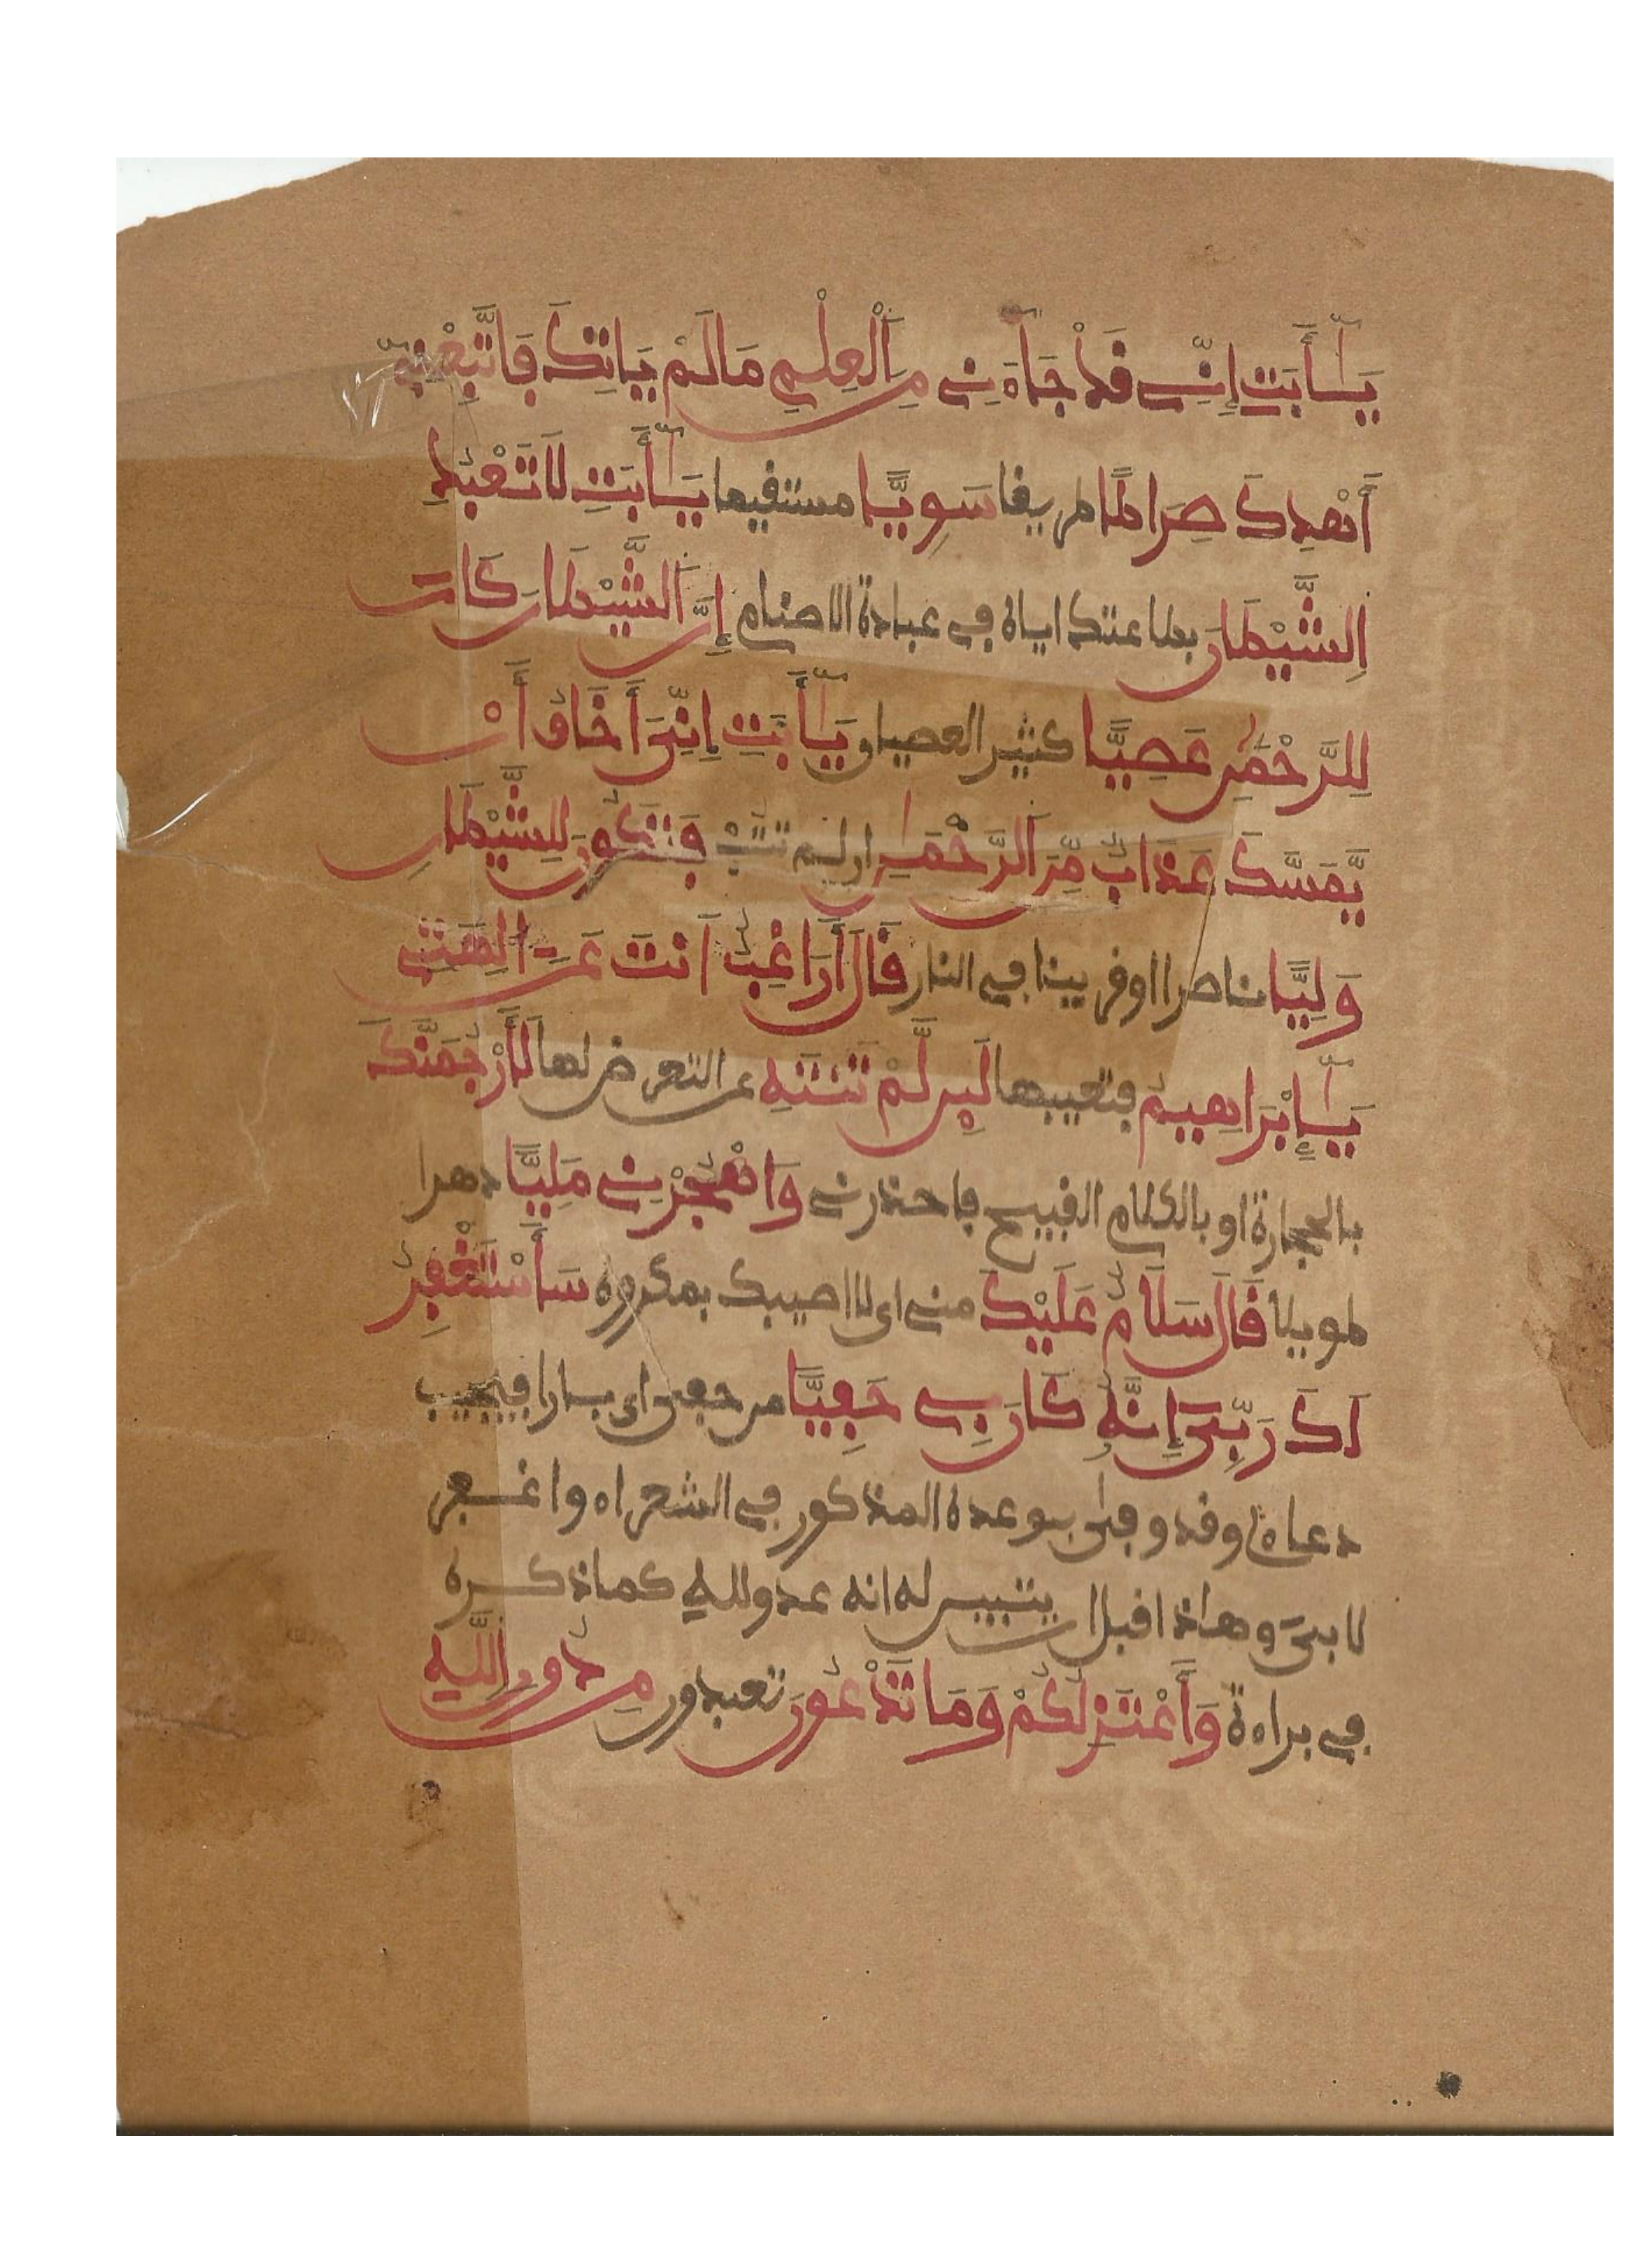 يَٰٓأَبَتِ إِنِّي قَدْ جَآءَنِي مِنَ ٱلْعِلْمِ مَا لَمْ يَاتِكَ فَٱتَّبِعْنِيٓ
أَهْدِكَ صِرَٰطًا طريقا سَوِيًّا مستقيما يَٰٓأَبَتِ لَا تَعْبُدِ
ٱلشَّيْطَٰنَ بطاعتك اياه في عبادة الاصنام إِنَّ ٱلشَّيْطَٰنَ كَانَ
لِلرَّحْمَٰنِ عَصِيًّا كثير العصيان يَٰٓأَبَتِ إِنِّيَ أَخَافُ أَنْ
يَّمَسَّكَ عَذَابٌ مِّنَ ٱلرَّحْمَٰنِ ان لم تتب فَتَكُونَ لِلشَّيْطَٰنِ
وَلِيًّا ناصرا او قرينا في النار قَالَ أَرَاغِبٌ اَنتَ عَنَ اٰلِهَتِي
يَٰٓإِبْرَاهِيمُ فتعيبها لَئِن لَّمْ تَنتَهِ عن التعرض لها لَأَرْجُمَنَّكَ
بالحجارة او بالكلام القبيح فاحذرني وَاهْجُرْنِي مَلِيًّا دهرا
طويلا قَالَ سَلَامٌ عَلَيْكَ مني اي لا اصيبك بمكروه سَأَسْتَغْفِرُ
لَكَ رَبِّيَ إِنَّهُۥ كَانَ بِي حَفِيًّا من حفي اي بارا فيجيب
دعاءي وقد وفى بوعده المذكور في الشعراء واغفر
لابي وهاذا قبل ان يتبين له انه عدو لله كما ذكره
في براءة وَأَعْتَزِلُكُمْ وَمَا تَدْعُونَ تعبدون مِن دُونِ ٱللَّهِ